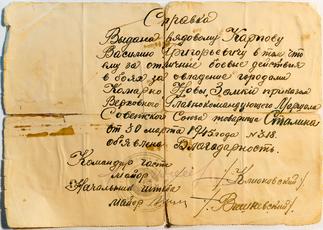 Справка
Выдана рядовому Карпову
Василию Григорьевичу в том что
ему за отличие боевые действия
в боях за овладение городами
Комарно, Новы, Замки приказом
Верховного Главнокомандующего Маршала
Советского Союза товарища Сталина
от 30 марта 1945 года №318.
объявлена Благодарность.
Командир части
майор /Климовский/
Начальник штаба
майор